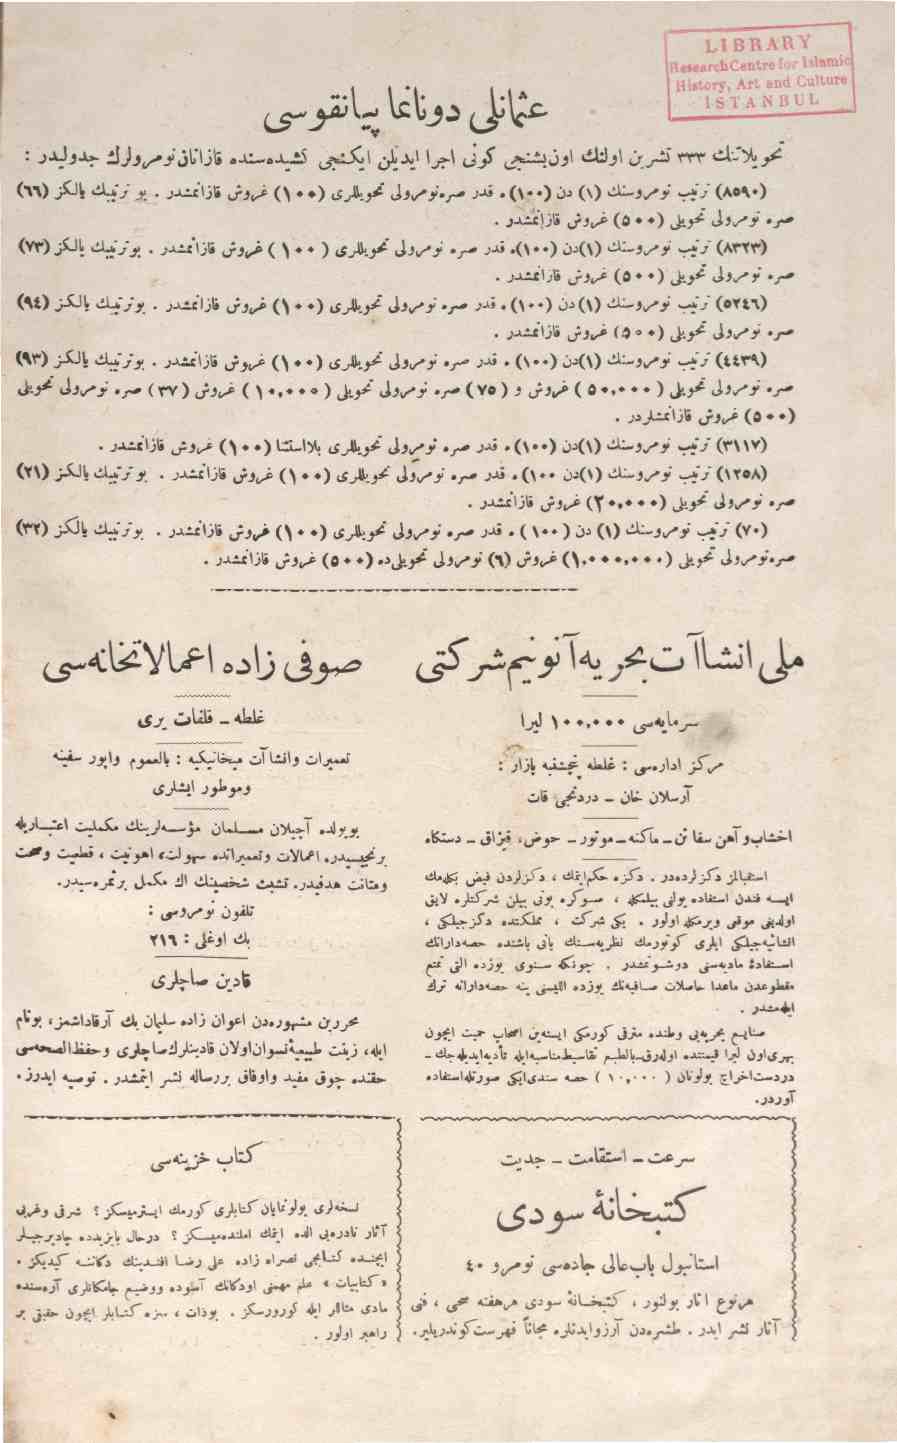 LIBRARY
Research Centre for Islamic
History, Art and Culture
ISTANBUL
عثمانلی دونانما پیانقوسی
تحویلاتنك ٣٣٣ تشرین اولنك اون‌بشنجی كونی اجرا ایدیلن ایكنجی كشیده‌سنده قازانان نومرولرك جدولیدر :
(٨٥٩٠) ترتیب نومروسنك (١) دن (١٠٠)ه قدر صره‌نومرولی تحویللری (١٠٠) غروش قازانمشدر . بو ترتیبك یالكز (٦٦)
صره نومرولی تحویلی (٥٠٠) غروش قازانمشدر .
(٨٣٢٣) ترتیب نومروسنك (١)دن (١٠٠)ه قدر صره نومرولی تحویللری ( ١٠٠ ) غروش قازانمشدر . بوترتیبك یالكز (٧٣)
صره نومرولی تحویلی (٥٠٠) غروش قازانمشدر .
(٥٢٤٦) ترتیب نومروسنك (١)دن (١٠٠)ه قدر صره نومرولی تحویللری (١٠٠) غروش قازانمشدر . بوترتیبك یالكز (٩٤)
صره نومرولی تحویلی (٥٠٠) غروش قازانمشدر .
(٤٤٣٩) ترتیب نومروسنك (١)دن (١٠٠)ه قدر صره نومرولی تحویللری (١٠٠) غروش قازانمشدر . بوترتیبك یالكز (٩٣)
صره نومرولی تحویلی ( ٥٠,٠٠٠ ) غروش و (٧٥) صره نومرولی تحویلی ( ١٠,٠٠٠ ) غروش (٣٧) صره نومرولی تحویلی
(٥٠٠) غروش قازانمشلردر .
(٣١١٧) ترتیب نومروسنك (١)دن (١٠٠)ه قدر صره نومرولی تحویللری بلااستثنا (١٠٠) غروش قازانمشدر .
(١٢٥٨) ترتیب نومروسنك (١)دن ١٠٠)ه قدر صره نومرولی تحویللری (١٠٠) غروش قازانمشدر . بو ترتیبك یالكز (٢١)
صره نومرولی تحویلی (٢٠,٠٠٠) غروش قازانمشدر .
(٧٠) ترتیب نومروسنك (١) دن ( ١٠٠ )ه قدر صره نومرولی تحویللری (١٠٠) غروش قازانمشدر . بوترتیبك یالكز (٣٢)
صره‌نومرولی تحویلی (١,٠٠٠,٠٠٠) غروش (٦) نومرولی تحویلی‌ده (٥٠٠) غروش قازانمشدر .
ملی انشاآت بحریه آنونیم شركتی
سرمایه‌سی ١٠٠,٠٠٠ لیرا
مركز اداره‌سی : غلطه پنجشنبه پازار :
آرسلان خان ـ دردنجی قات
اخشاب و آهن سفائن ـ ماكنه ـ موتور ـ حوض، قیزاق ـ دستكاه
استقبالمز دكزلرده‌در . دكزه حكم ایتمك ، دكزلردن فیض بكله‌مك
ایسه فندن استفاده یولنی بیلمكله ، صوكره بونی بیلن شركتلره لایق
اولدیغی موقعی ویرمكله اولور . یكی شركت ، مملكتده دكزجیلكی ،
انشائیه‌جیلكی ایلری كوتورمك نظریه‌سنك یانی باشنده حصه‌دارانك
استفادهٔ مادیه‌سنی دوشونمشدر . چونكه سنوی یوزده التی تمتع
مقطوعدن ماعدا حاصلات صافیه‌نك یوزده اللیسنی ینه حصه‌دارانه ترك
ایله‌مشدر .
صنایع بحریه‌یی وطنده مترقی كورمكی ایسته‌ین اصحاب حمیت ایچون
بهری اون لیرا قیمتنده اوله‌رق‌بالطبع تقاسیط مناسبه‌ایله تأدیه‌ایدیله‌جك ـ
دردست اخراج بولونان ( ١٠,٠٠٠ ) حصه سندی‌ایكی صورتله‌استفاده
آوردر.
صوفی زاده اعمالاتخانه‌سی
غلطه ـ قلفات یری
تعمیرات وانشاآت میخانیكیه : بالعموم واپور سفینه
وموطور ایشلری
بویولده آچیلان مسلمان مؤسسه‌لرینك مكملیت اعتباریله
برنجیسیدر. اعمالات وتعمیراتده سهولت، اهونیت ، قطعیت وصحت
ومتانت هدفیدر. تشبث شخصینك اك مكمل برثمره‌سیدر.
تلفون نومروسی :
بك اوغلی : ٢١٦
قادین صاچلری
محررین مشهوره‌دن اعوان زاده سلیمان بك آرقاداشمز، بونام
ایله، زینت طبیعیهٔ نسوان اولان قادینلرك صاچلری وحفظ الصحه‌سی
حقنده چوق مفید واوفاق بررساله نشر ایتمشدر . توصیه ایدرز.
سرعت ـ استقامت ـ جدیت
كتبخانهٔ سودی
استانبول باب‌عالی جاده‌سی نومرو ٤٠
هرنوع اثار بولنور ، كتبخانهٔ سودی هرهفته صحی ، فنی
آثار نشر ایدر . طشره‌دن آرزوایدنلره مجاناً فهرست كوندریلیر.
كتاب خزینه‌سی
نسخه‌لری بولونمایان كتابلری كورمك ایسترمیسكز ؟ شرقی وغربی
آثار نادره‌یی الده ایتمك املنده‌میسكز ؟ درحال بایزیدده چادیرجیلر
ایچنده كتابجی نصراه زاده علی رضا افندینك دكاننه كیدیكز .
«كتابیات» علم مهمنی اودكانك آسوده ووضیع جامكانلری آره‌سنده
مادی مثاللر ایله كورورسكز . بوذات ، سزه كتابلر ایچون حقیقی بر
راهبر اولور .